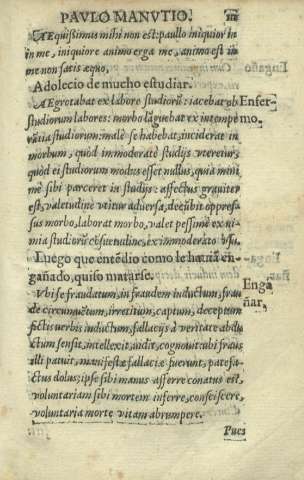 PAVLO MANVTIO.
AEquissimus mihi non est: paullo iniquior in
in me, iniquiore animo erga me, animo est in
me non satis æquo.
Adolecio de mucho estudiar.
AEgrotabat ex labore studiorũ: iacebat ob
Enfer-
studiorum labores: morbo lãguebat ex intempe
mo.
rãtia studiorum: malè se habebat, inciderat in
morbum, quòd immoderatè studijs vteretur,
quòd ei studiorum modus esset nullus, quia mini
mè sibi parceret in studijs: affectus grauiter
est, valetudine vtitur aduersa, decũbit oppres-
sus morbo, laborat morbo, valet pessimè ex ni-
mia studiorũ cõsuetudine, ex immoderato vsu.
Luego que entẽdio como le hauiã en-
gañado, quiso matarse.
Enga
ñar,
Vbi se fraudatum, in fraudem inductum, frau
de circumuẽtum, irretitum, captum, deceptum
fictis verbis inductum, fallacijs à veritate abdu
ctum sensit, intellexit, uidit, cognouit: ubi fraus
illi patuit, manifestæ fallaciæ fuerunt, patefa-
ctus dolus; ipse sibi manus afferre conatus est,
voluntariam sibi mortem inferre, consciscere,
voluntaria morte vitam abrumpere.
Pues